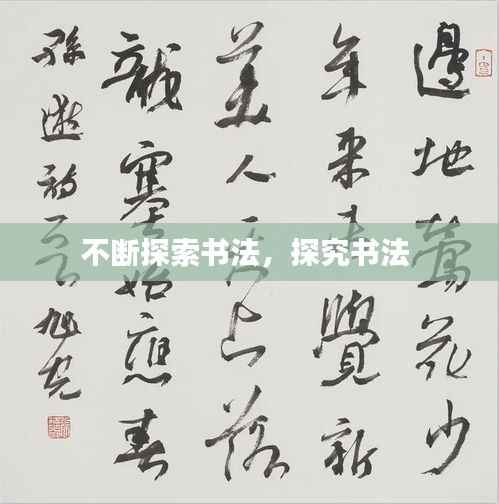 邊地莺花少
年来未覺新
美人天上落
龍塞始應春
孫逖詩
旭光
不断探索书法，探究书法